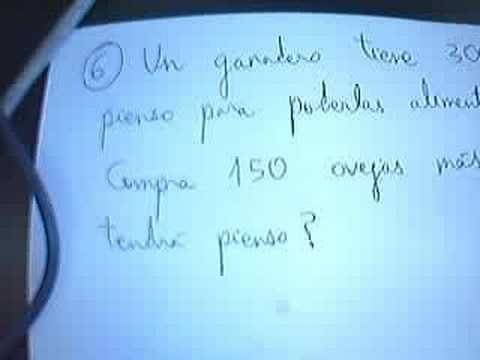 ⑥ Un ganadero tiene 30
pienso para poderlas aliment
Compra 150 ovejas más
tendrá pienso?